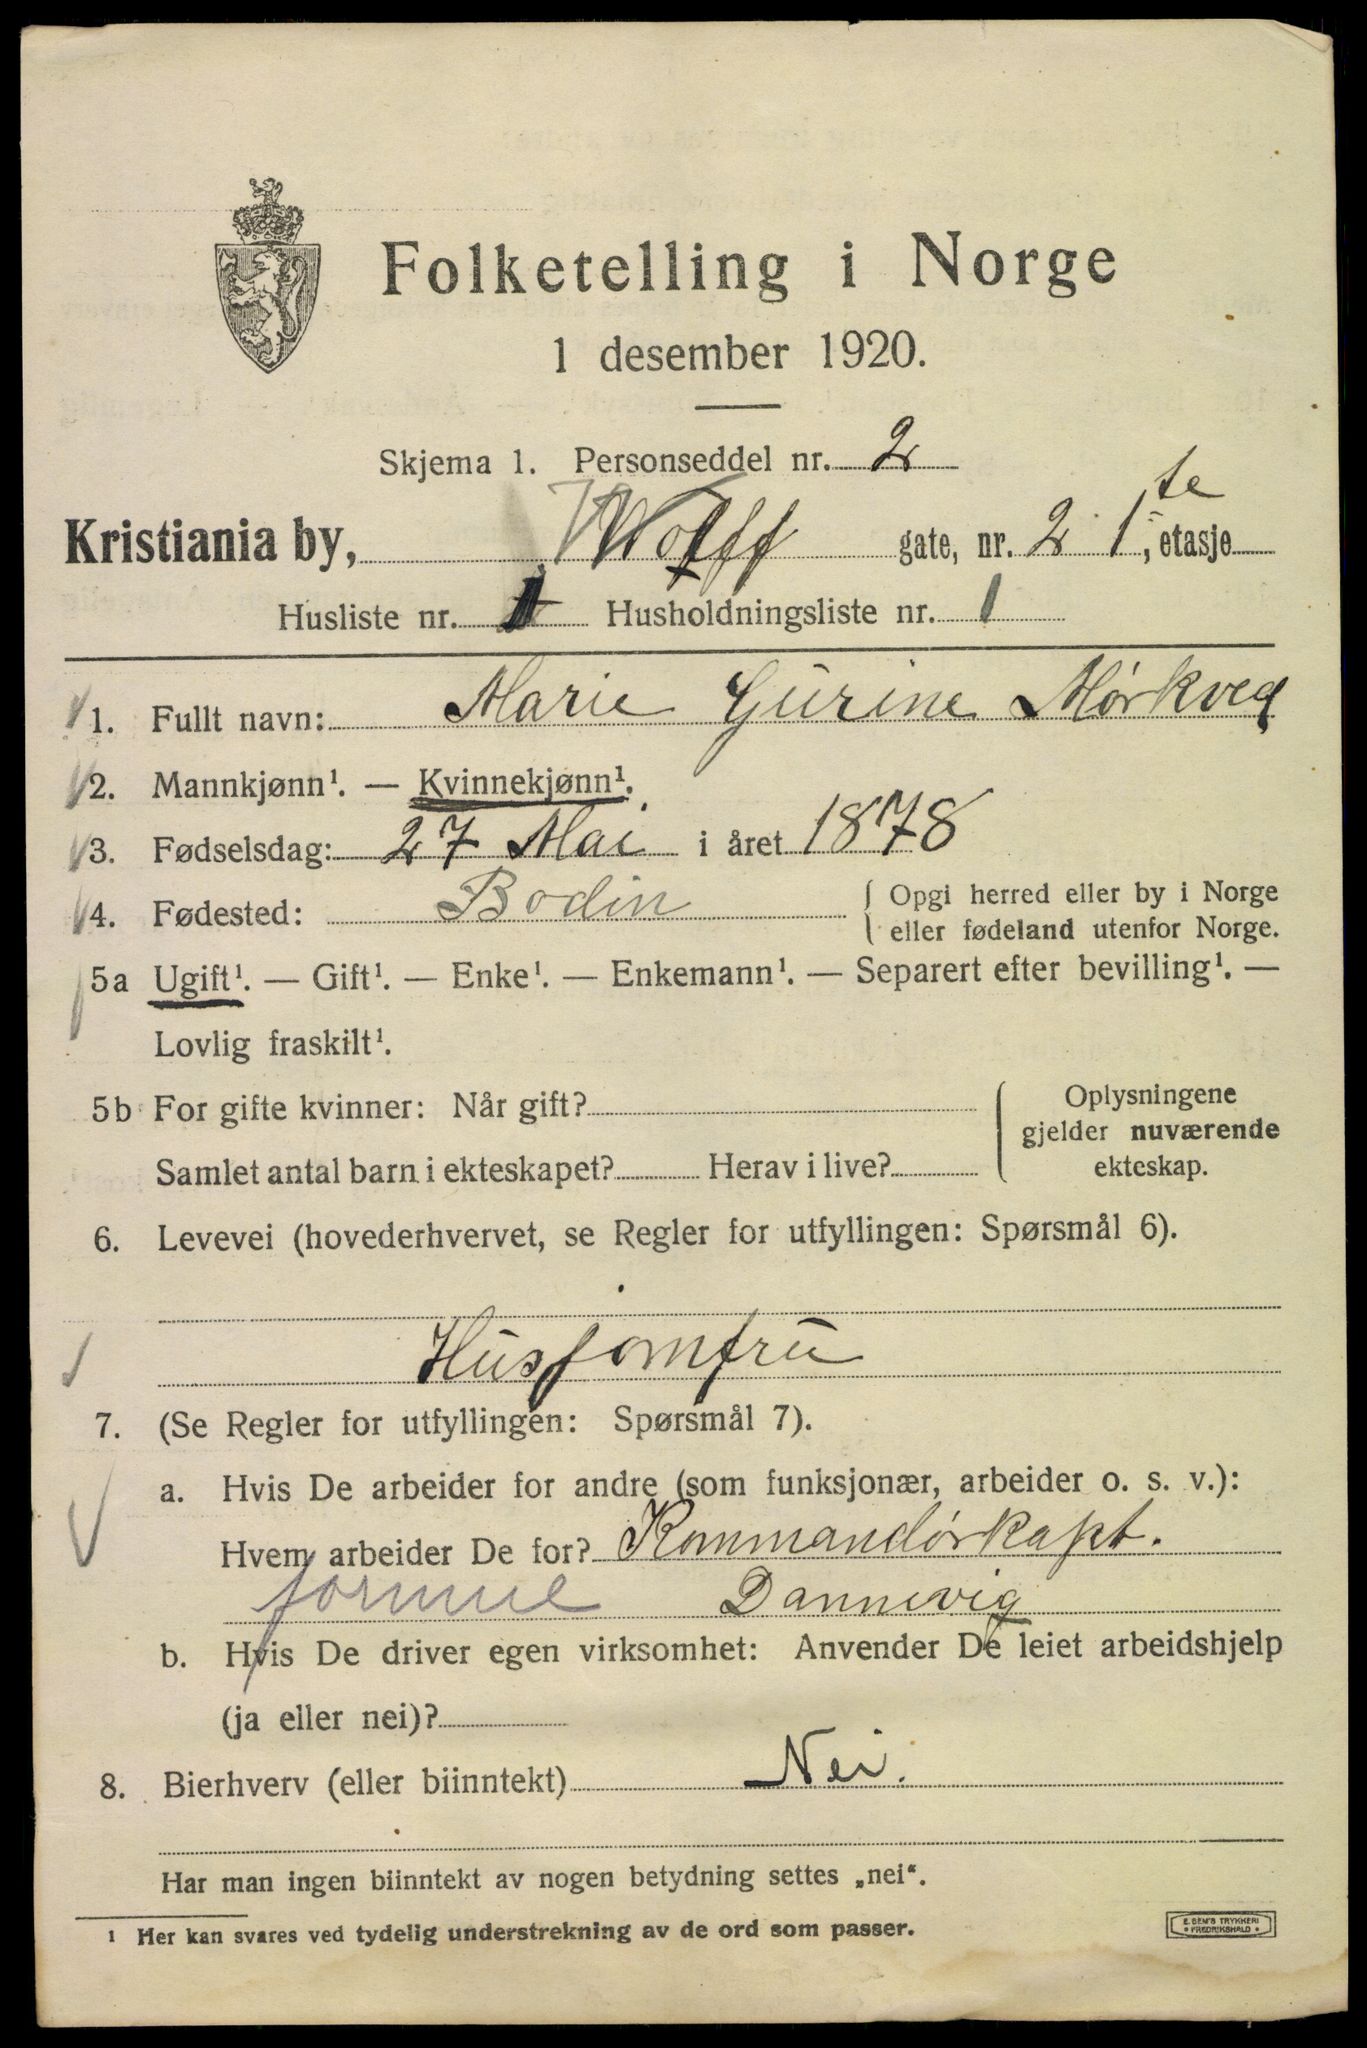 Folketelling i Norge
1 desember 1920.
Skjema 1. Personseddel nr. 2
Kristiania by, Wolff gate, nr. 2 1te, etasje
Husliste nr. 1 Husholdningsliste nr. 1
1. Fullt navn: Marie Gurine Mørkved
2. Mannkjønn¹. — Kvinnekjønn¹.
3. Fødselsdag: 27 Mai i året 1878
4. Fødested: Bodin { Opgi herred eller by i Norge
eller fødeland utenfor Norge.
5a Ugift¹. — Gift¹. — Enke¹. — Enkemann¹. — Separert efter bevilling¹. —
Lovlig fraskilt¹.
5b For gifte kvinner: Når gift?
Samlet antal barn i ekteskapet? Herav i live?
Oplysningene
gjelder nuværende
ekteskap.
6. Levevei (hovederhvervet, se Regler for utfyllingen: Spørsmål 6).
Husjomfru
7. (Se Regler for utfyllingen: Spørsmål 7).
a. Hvis De arbeider for andre (som funksjonær, arbeider o. s. v.):
Hvem arbeider De for? Kommandørkapt.
Dannevig
b. Hvis De driver egen virksomhet: Anvender De leiet arbeidshjelp
(ja eller nei)?
8. Bierhverv (eller biinntekt) Nei.
Har man ingen biinntekt av nogen betydning settes „nei“.
¹ Her kan svares ved tydelig understrekning av de ord som passer.
E. SEM'S TRYKKERI
• FREDRIKSHALD •